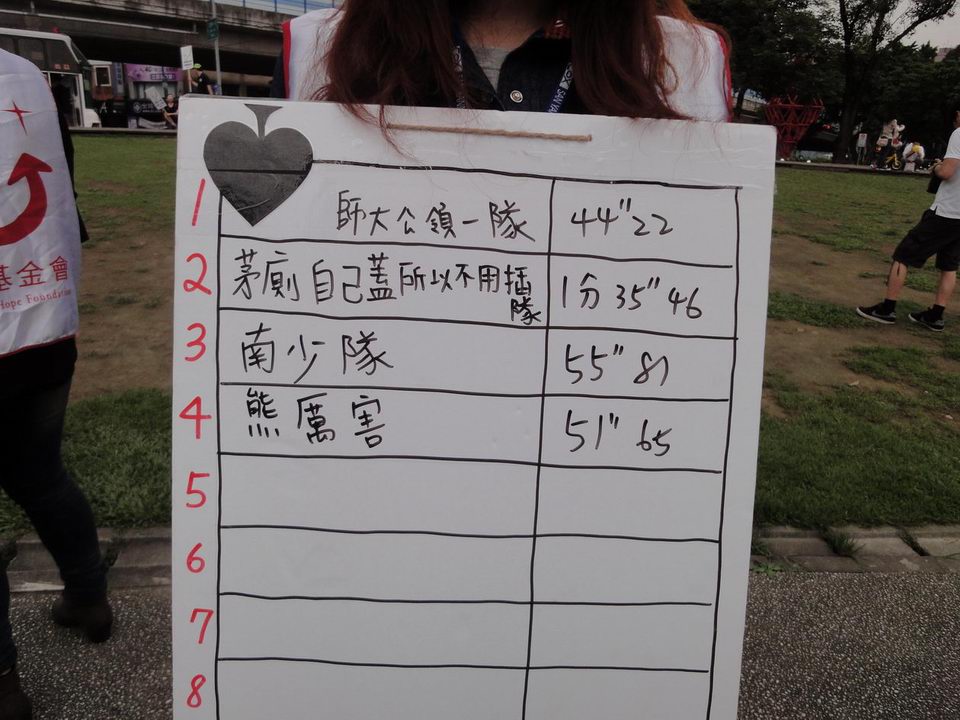 1 師大公領一隊 44"22
2 茅廁自己蓋所以不用插隊 1分35"46
3 南少隊 55"81
4 熊厲害 51"65
5
6
7
8
基金會
Hope Foundation